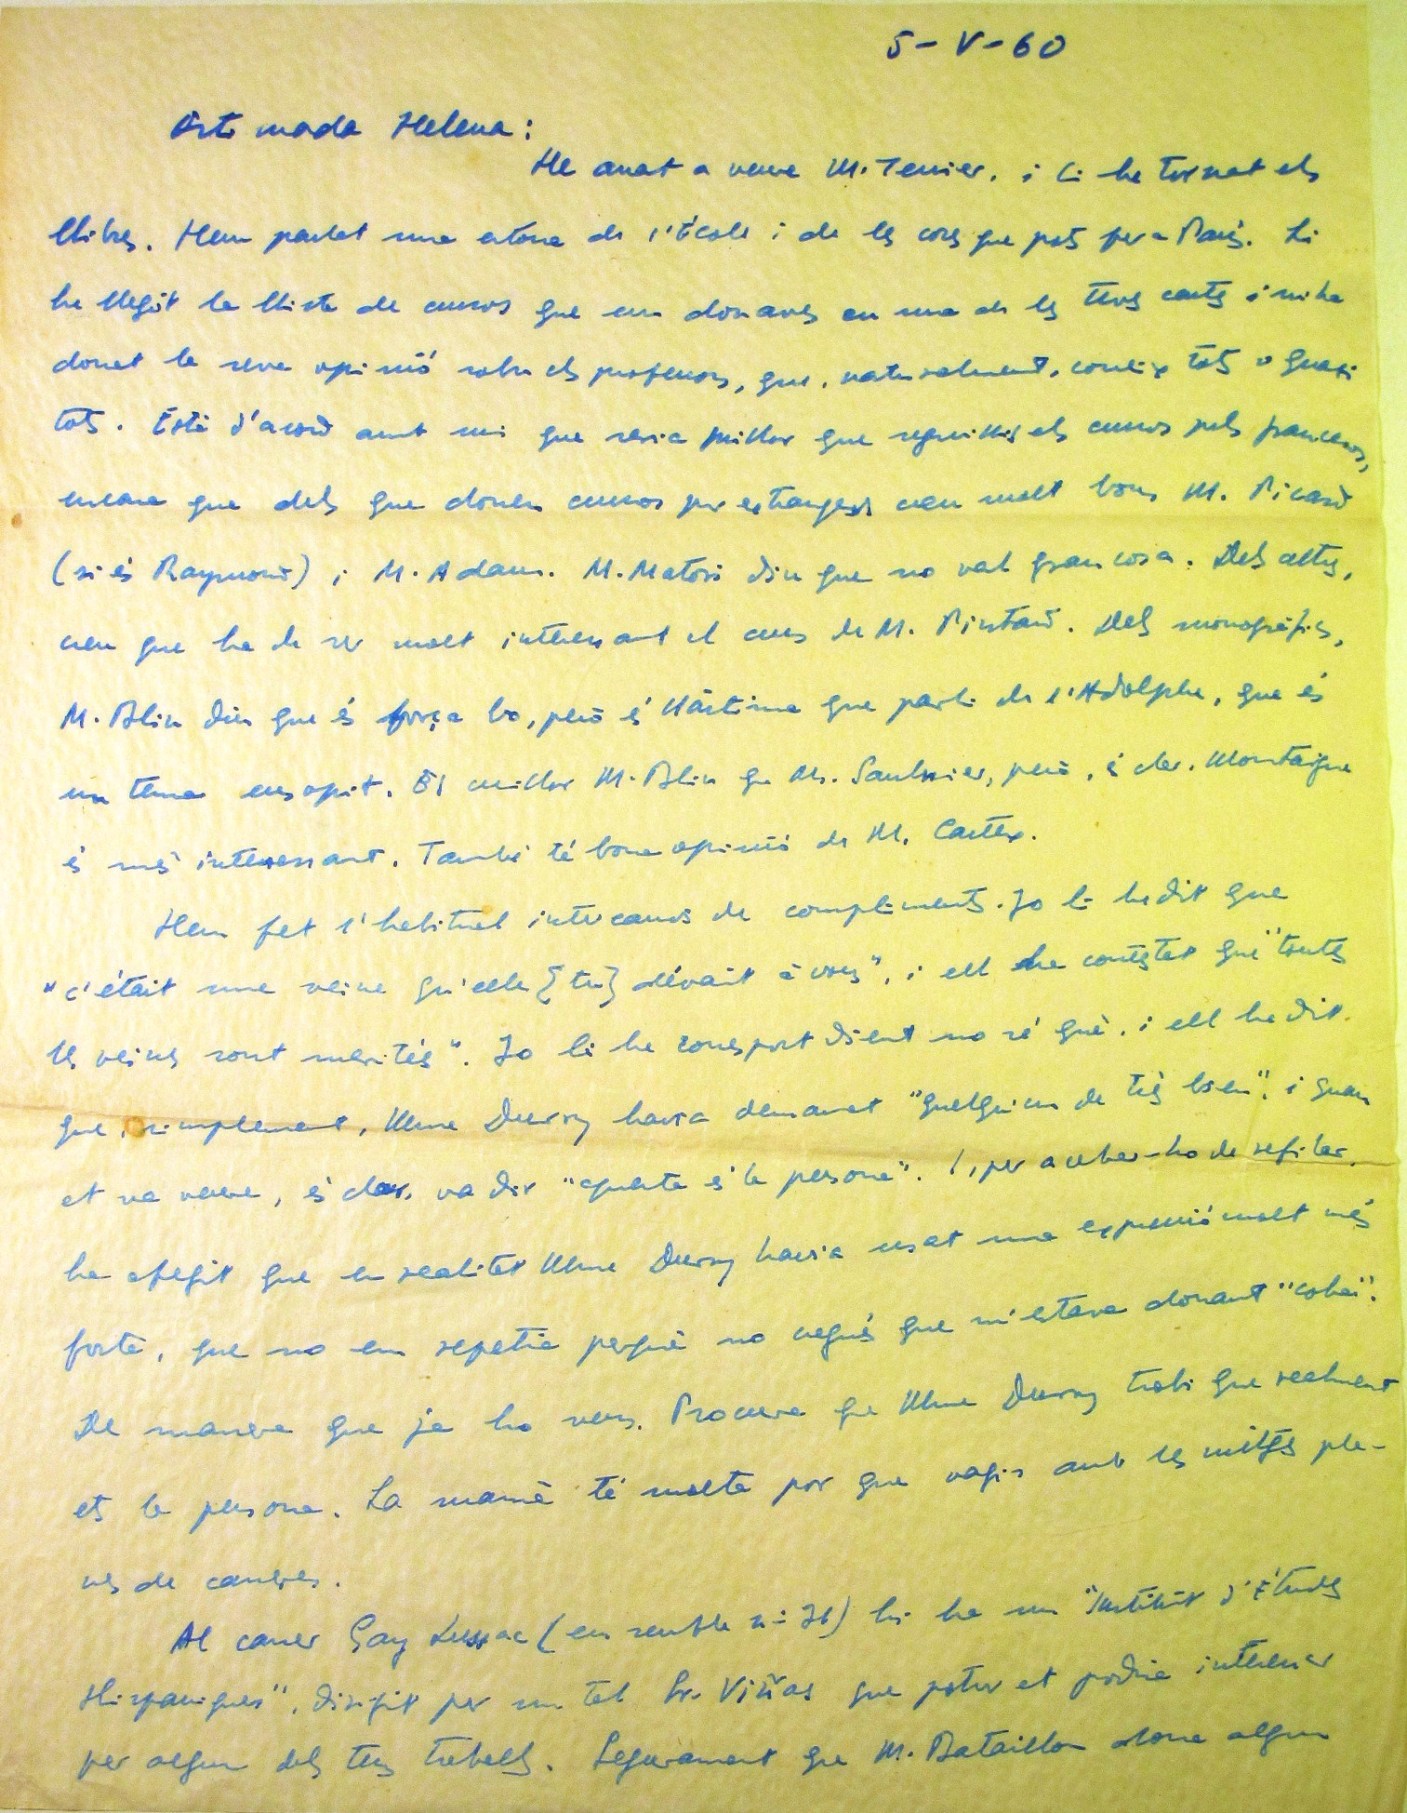 5-V-60
Estimada Helena:
He anat a veure M. Tenier, i li he tornat els
llibres. Hem parlat una estona de l'École i de les coses que pots fer a París. Li
he llegit la llista de cursos que em donaves en una de les teves cartes i m'ha
donat la seva opinió sobre els professors, que, naturalment, coneix tots o quasi
tots. Està d'acord amb mi que seria millor que seguissis els cursos pels francesos,
encara que dels que donen cursos per estrangers creu molt bons M. Picard
(si és Raymond) i M. Adam. M. Matoré diu que no val gran cosa. Dels altres,
creu que ha de ser molt interessant el curs de M. Pintard. Dels monogràfics,
M. Blin diu que és força bo, però és llàstima que parli de l'Adolphe, que és
un tema ensopit. És millor M. Blin que M. Saulnier, però, és clar, Montaigne
és més interessant. També té bona opinió de M. Castex.
Hem fet l'habitual intercanvi de compliments. Jo li he dit que
"c'était une veine qu'elle [tu] devait à vous", i ell ha contestat que "toutes
les veines sont meritées". Jo li he correspost dient no sé què, i ell ha dit
que, simplement, Mme Durry havia demanat "quelqu'un de très bien", i quan
et va veure, és clar, va dir "aquesta és la persona". I, per acabar-ho de refilar,
ha afegit que en realitat Mme Durry havia usat una expressió molt més
forta, que no em repetia perquè no cregués que m'estava donant "coba".
De manera que ja ho veus. Procura que Mme Durry trobi que realment
ets la persona. La mamà té molta por que vagis amb les mitges ple-
nes de carreres.
Al carrer Gay Lussac (em sembla nº 31) hi ha un "Institut d'Études
Hispaniques", dirigit per un tal Sr. Viñas que potser et podria interessar
per algun dels teus treballs. Segurament que M. Bataillon dona algun